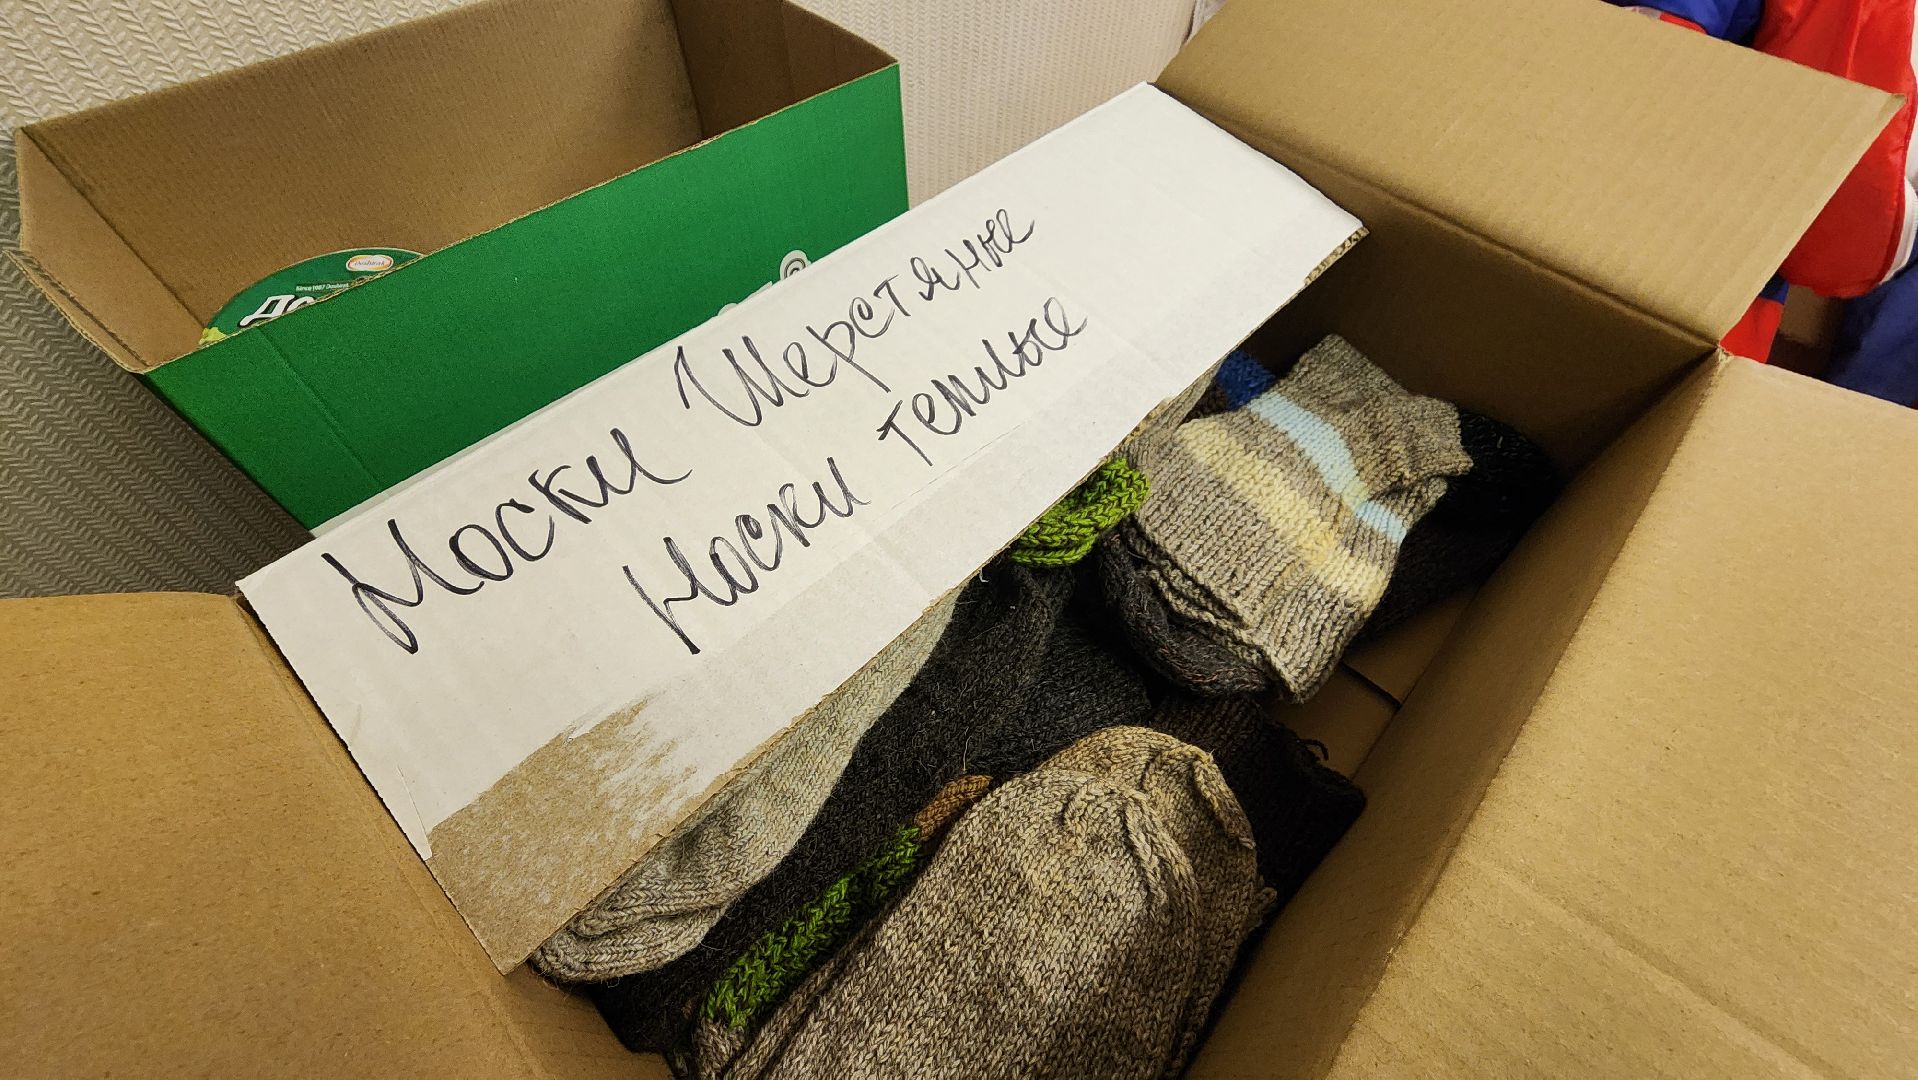 Носки Шерстяные
Носки теплые
Doshirak
Since 1987 Doshirak
До